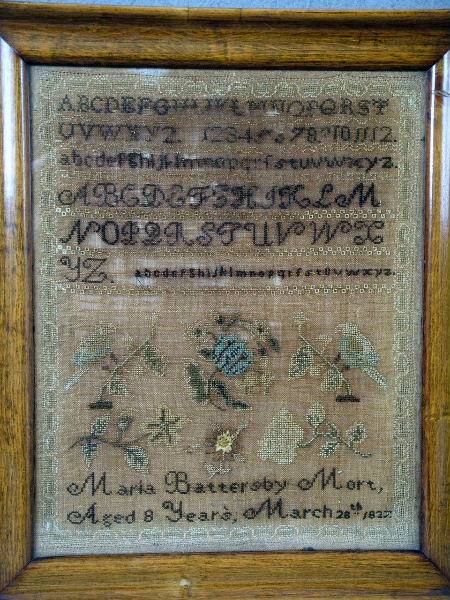 ABCDEFGHIJKLMNOPQRST
UVWXYZ. 123456789101112.
abcdefghijklmnopqrſstuvwxyz.
ABCDEFGHIKLM
NOPQRSTUVWX
YZ. abcdefghijklmnopqrſstuvwxyz.
Maria Battersby Mort,
Aged 8 Years, March 28th 1822